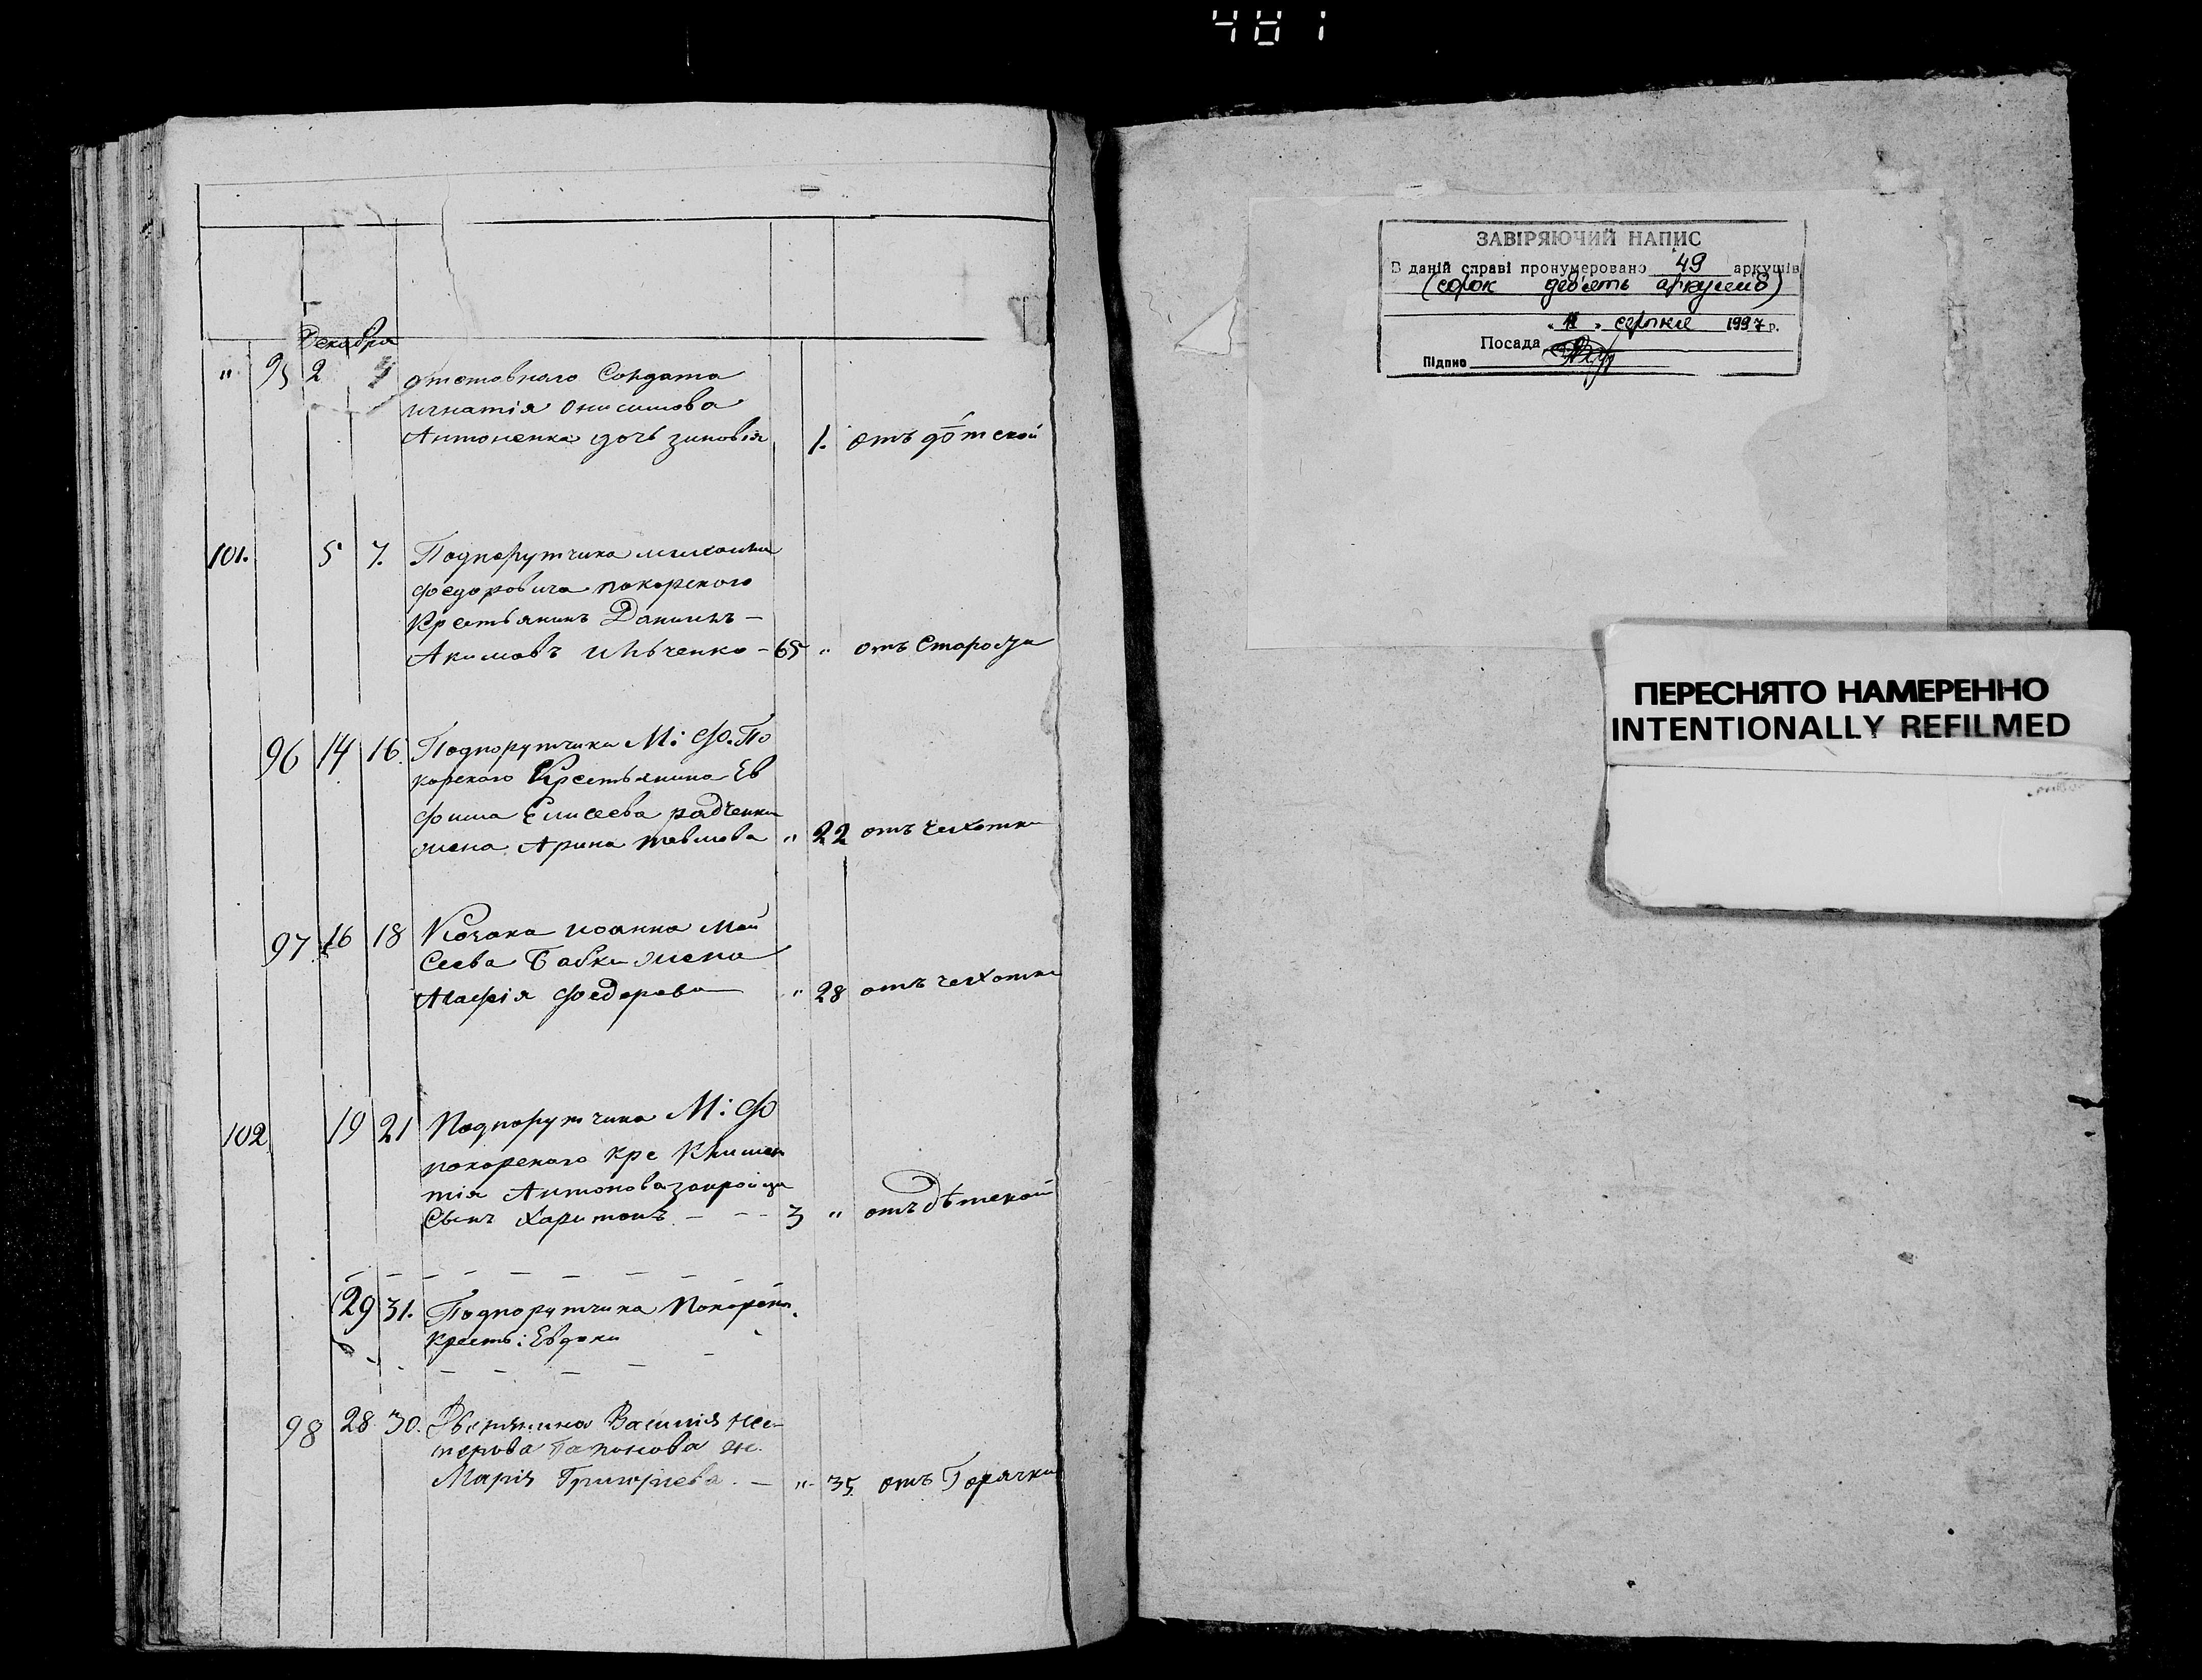 481
Декабря
" 95 2 4 отставнаго Солдата
игнатія Онисимова
Антоненка дочь зиновія 1. отъ дѣтской
101. 5 7. Подпорутчика михаила
федоровича покорского
Крестьянинъ Даниилъ –
Акимовъ Ильченко – 65 " отъ Старости
96 14 16. Подпорутчика М: Ф. По
корского Крестьянина Ев
фима Елисеева радченка
жена Арина " 22 отъ чахотки
97 16 18 Козака иоанна Мои
сеева Бабки жена
Агафія Федорова " 28 отъ чахотки
102 19 21 Подпорутчика М: Ф
покорского кре Климен
тія Антонова закройца
сынъ Харитонъ – – – 3 " отъ дѣтской
29 31. Подпорутчика Покорско.
Кресть: Евдоки
98 28 30. Василія Нес–
терова ж.
Марія Григориева. – " 35. отъ Горячки
ЗАВІРЯЮЧИЙ НАПИС
В даній справі пронумеровано 49 аркушів
(сорок дев'ять аркушів)
" 11 " серпня 1997 р.
Посада
Підпис
ПЕРЕСНЯТО НАМЕРЕННО
INTENTIONALLY REFILMED